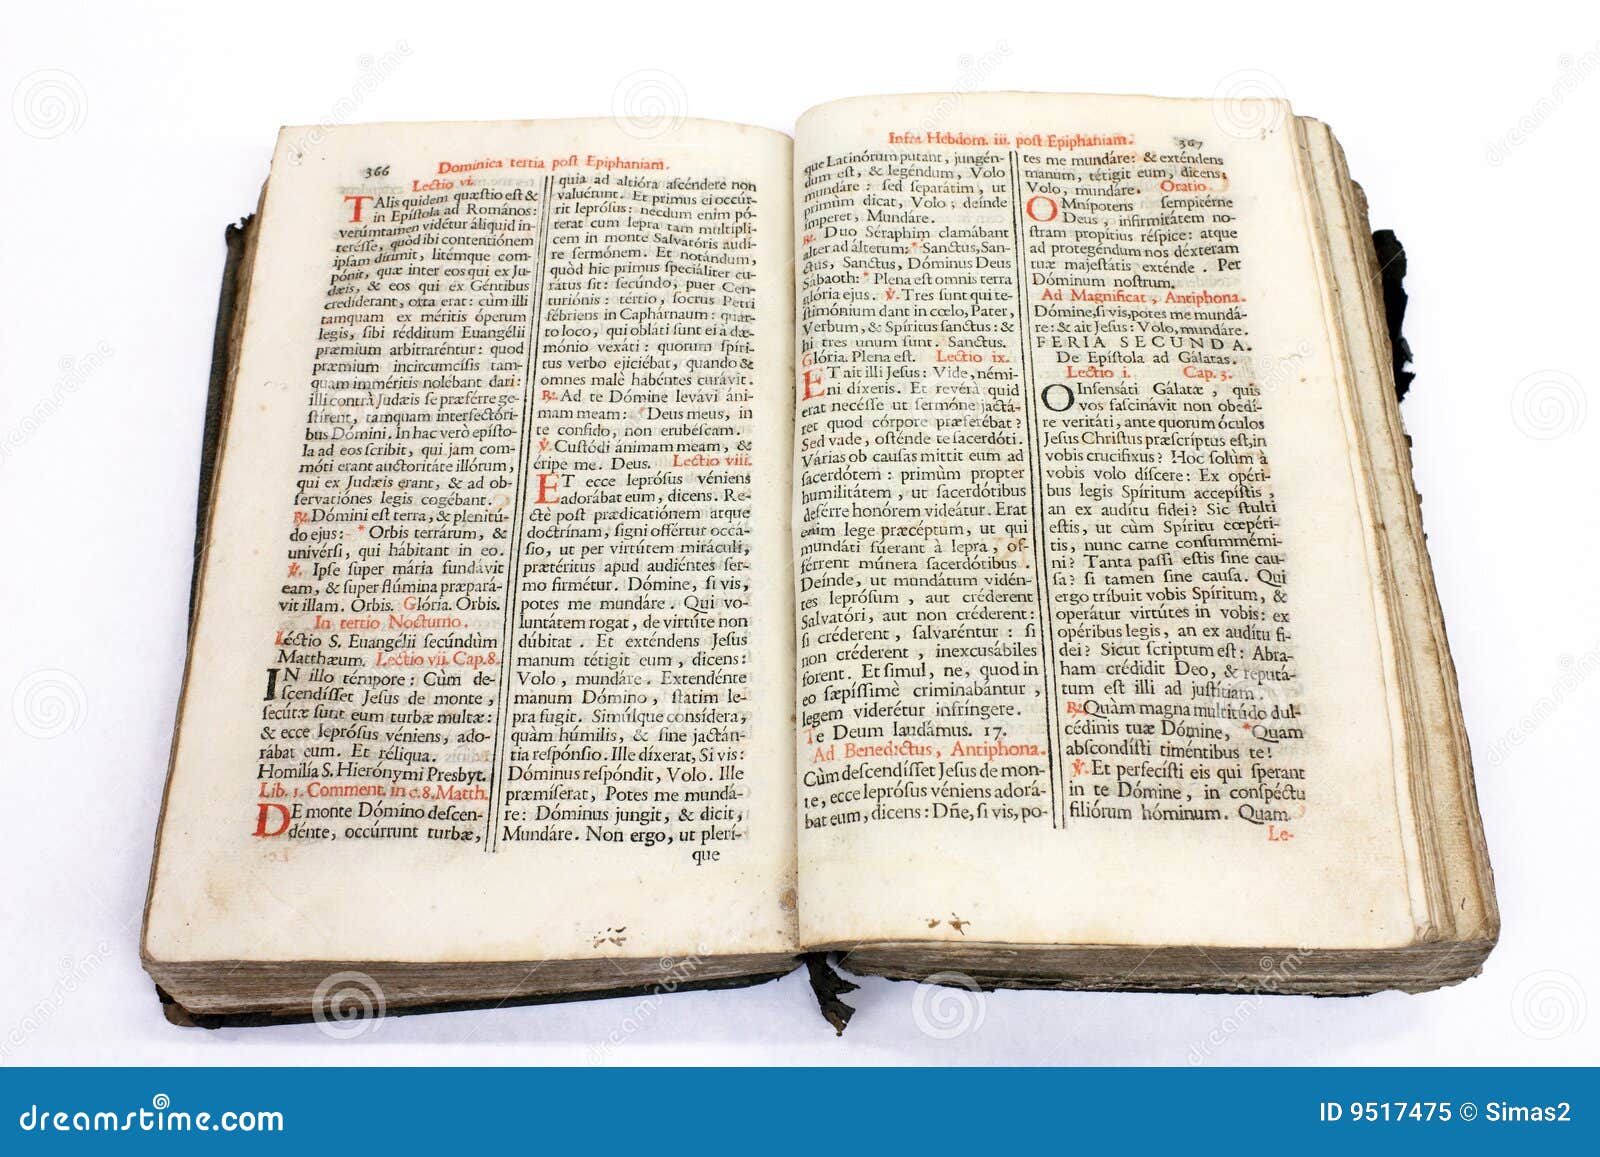 366
Dominica tertia post Epiphaniam.
Lectio vi.
TAlis quidem quæstio est &
in Epístola ad Romános:
verúmtamen vidétur áliquid in-
terésse, quòd ibi contentiónem
ipsam dirimit, litémque com-
pónit, quæ inter eos qui ex Ju-
dæis, & eos qui ex Géntibus
crediderant, orta erat: cùm illi
tamquam ex méritis óperum
legis, sibi rédditum Euangélii
præmium arbitraréntur: quod
præmium incircumcísis tam-
quam imméritis nolébant dari:
illi contrà Judæis se præférre ge-
stírent, tamquam interfectóri-
bus Dómini. In hac verò epísto-
la ad eos scribit, qui jam com-
móti erant auctoritáte illórum,
qui ex Judæis erant, & ad ob-
servatiónes legis cogébant.
℟. Dómini est terra, & plenitú-
do ejus: * Orbis terrárum, &
univérsi, qui hábitant in eo.
℣. Ipse super mária fundávit
eam, & super flúmina præpará-
vit illam. Orbis. Glória. Orbis.
In tertio Nocturno.
Léctio S. Euangélii secúndùm
Matthæum. Lectio vii. Cap. 8.
IN illo témpore: Cùm de-
scendísset Jesus de monte,
secútæ sunt eum turbæ multæ:
& ecce leprósus véniens, ado-
rábat eum. Et réliqua.
Homilía S. Hierónymi Presbyt.
Lib. 1. Comment. in c. 8. Matth.
DE monte Dómino descen-
dénte, occúrrunt turbæ,
quia ad altióra ascéndere non
valuérunt. Et primus ei occúr-
rit leprósus: necdum enim pó-
terat cum lepra tam multípli-
cem in monte Salvatóris audí-
re sermónem. Et notándum,
quòd hic primus speciáliter cu-
rátus sit: secúndo, puer Cen-
turiónis: tértio, socrus Petri
fébriens in Caphárnaum: quar-
to loco, qui obláti sunt ei à dæ-
mónio vexáti: quorum spíri-
tus verbo ejiciébat, quando &
omnes malè habéntes curávit.
℟. Ad te Dómine levávi áni-
mam meam: * Deus meus, in
te confído, non erubéscam.
℣. Custódi ánimam meam, &
éripe me. Deus. Lectio viii.
ET ecce leprósus véniens
adorábat eum, dicens. Re-
ctè post prædicatiónem atque
doctrínam, signi offértur occá-
sio, ut per virtútem miráculi,
prætéritus apud audiéntes ser-
mo firmétur. Dómine, si vis,
potes me mundáre. Qui vo-
luntátem rogat, de virtúte non
dúbitat. Et exténdens Jesus
manum tétigit eum, dicens:
Volo, mundáre. Extendénte
manum Dómino, statim le-
pra fugit. Simúlque consídera,
quàm húmilis, & sine jactán-
tia respónsio. Ille díxerat, Si vis:
Dóminus respóndit, Volo. Ille
præmíserat, Potes me mundá-
re: Dóminus jungit, & dicit,
Mundáre. Non ergo, ut plerí-
que
Infra Hebdom. iii. post Epiphaniam.
367
que Latinórum putant, jungén-
dum est, & legéndum, Volo
mundáre: sed separátim, ut
primùm dicat, Volo; deinde
ímperet, Mundáre.
℟. Duo Séraphim clamábant
alter ad álterum: * Sanctus, San-
ctus, Sanctus, Dóminus Deus
Sábaoth: * Plena est omnis terra
glória ejus. ℣. Tres sunt qui te-
stimónium dant in cœlo, Pater,
Verbum, & Spíritus sanctus: &
hi tres unum sunt. Sanctus.
Glória. Plena est. Lectio ix.
ET ait illi Jesus: Vide, némi-
ni díxeris. Et reverà quid
erat necésse ut sermóne jactá-
ret quod córpore præferébat?
Sed vade, osténde te sacerdóti.
Várias ob causas mittit eum ad
sacerdótem: primùm propter
humilitátem, ut sacerdótibus
deférre honórem videátur. Erat
enim lege præcéptum, ut qui
mundáti fúerant à lepra, of-
férrent múnera sacerdótibus.
Deínde, ut mundátum vidén-
tes leprósum, aut créderent
Salvatóri, aut non créderent:
si créderent, salvaréntur: si
non créderent, inexcusábiles
forent. Et simul, ne, quod in
eo sæpíssimè criminabántur,
legem viderétur infríngere.
Te Deum laudámus. 17.
Ad Benedictus, Antiphona.
Cùm descendísset Jesus de mon-
te, ecce leprósus véniens adorá-
bat eum, dicens: Dñe, si vis, po-
tes me mundáre: & exténdens
manum, tétigit eum, dicens:
Volo, mundáre. Oratio.
OMnípotens sempitérne
Deus, infirmitátem no-
stram propítius réspice: atque
ad protegéndum nos déxteram
tuæ majestátis exténde. Per
Dóminum nostrum.
Ad Magnificat, Antiphona.
Dómine, si vis, potes me mundá-
re: & ait Jesus: Volo, mundáre.
FERIA SECUNDA.
De Epístola ad Gálatas.
Lectio i. Cap. 3.
OInsensáti Gálatæ, quis
vos fascinávit non obedí-
re veritáti, ante quorum óculos
Jesus Christus præscríptus est, in
vobis crucifíxus? Hoc solùm à
vobis volo díscere: Ex opéri-
bus legis Spíritum accepístis,
an ex audítu fídei? Sic stulti
estis, ut cùm Spíritu cœpéri-
tis, nunc carne consummémi-
ni? Tanta passi estis sine cau-
sa? si tamen sine causa. Qui
ergo tríbuit vobis Spíritum, &
operátur virtútes in vobis: ex
opéribus legis, an ex audítu fí-
dei? Sicut scriptum est: Abra-
ham crédidit Deo, & reputá-
tum est illi ad justítiam.
℟. Quàm magna multitúdo dul-
cédinis tuæ Dómine, * Quam
abscondísti timéntibus te!
℣. Et perfecísti eis qui sperant
in te Dómine, in conspéctu
filiórum hóminum. Quam
Le-
dreamstime.com
ID 9517475 © Simas2